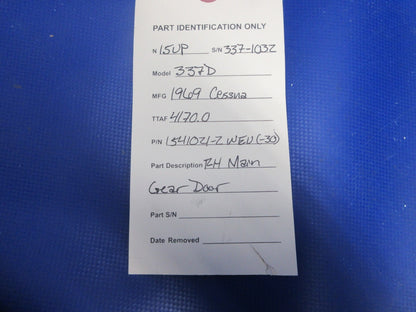 PART IDENTIFICATION ONLY
N 15UP S/N 337-1032
Model 337D
MFG 1969 Cessna
TTAF 4170.0
P/N 1541021-2 WEU (-30)
Part Description RH Main
Gear Door
Part S/N
Date Removed